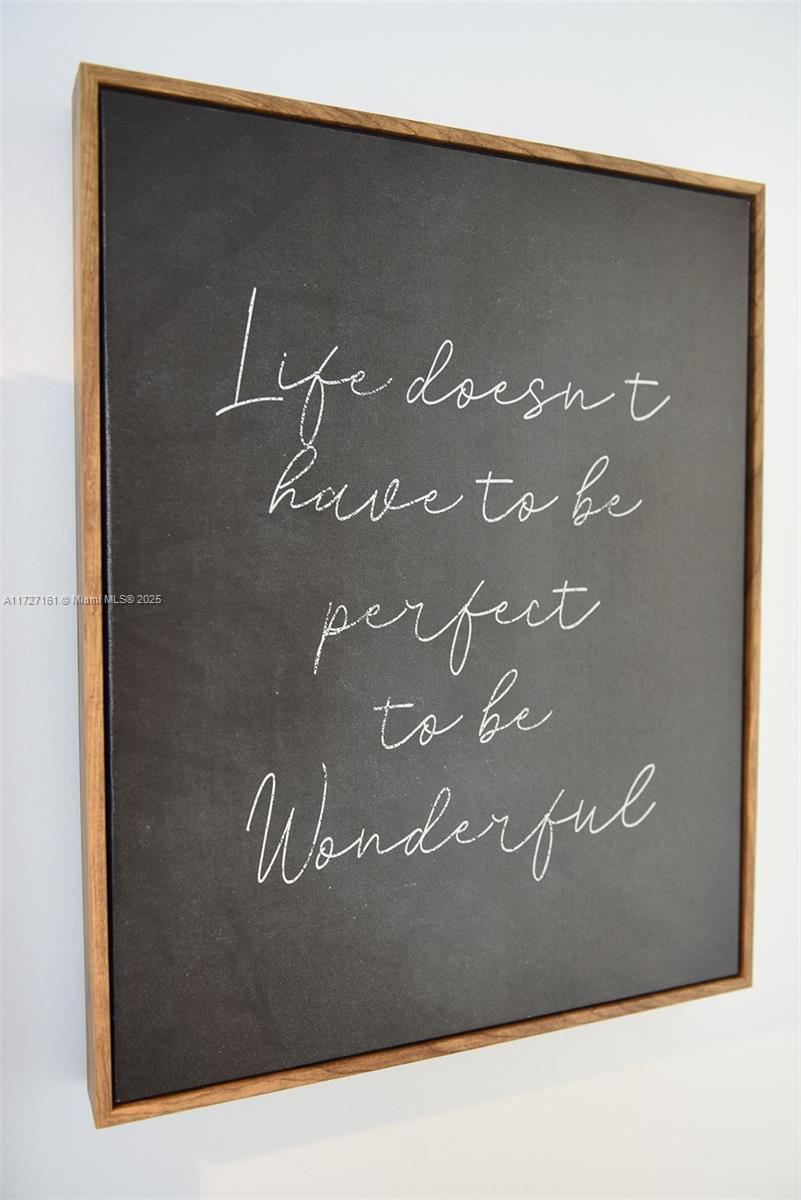 Life doesn t
have to be
perfect
to be
Wonderful
A11727161 © Miami MLS® 2025